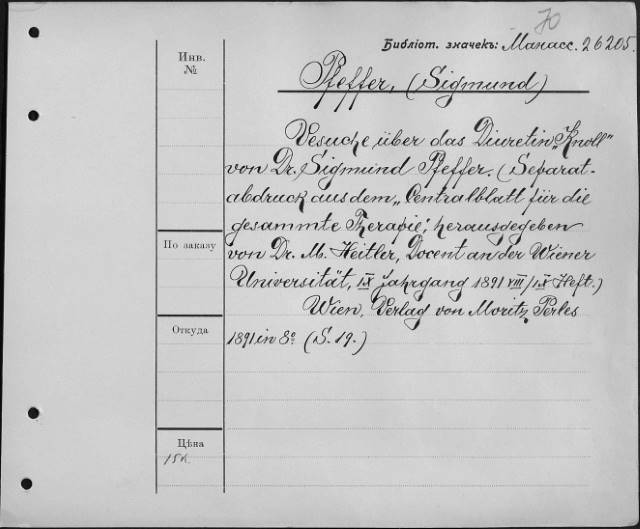 70
Библіот. значекъ: Манасс. 26205.
Инв.
№
Pfeffer, (Sigmund)
Vesuche über das Diuretin „Knoll“
von Dr. Sigmund Pfeffer. (Separat-
abdruck aus dem „Centralblatt für die
gesammte Therapie“, herausgegeben
По заказу
von Dr. M. Heitler, Docent an der Wiener
Universität, IX Jahrgang 1891 VIII/IX Heft.)
Wien, Verlag von Moritz Perles
Откуда
1891 in 8° (S. 19.)
Цѣна
15к